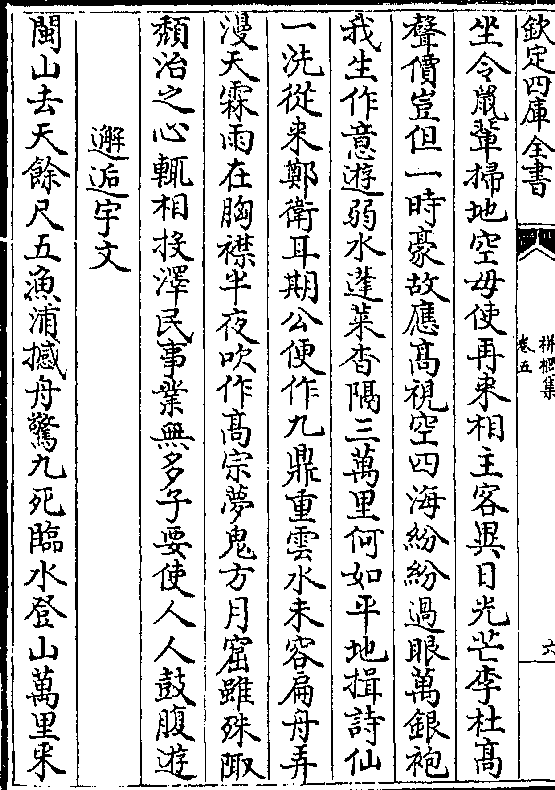 欽定四庫全書
栟櫚集
卷五
六
坐令鼠輩掃地空毋使再来相主客異日光芒李杜髙
聲價豈但一時豪故應髙視空四海紛紛過眼萬銀袍
我生作意遊弱水蓬萊杳隔三萬里何如平地揖詩仙
一洗從来鄭衛耳期公便作九鼎重雲水未容扁舟弄
漫天霖雨在胸襟半夜吹作髙宗夢鬼方月窟雖殊陬
頽冶之心輒相投澤民事業無多子要使人人鼓腹遊
邂逅宇文
閩山去天餘尺五漁浦撼舟驚九死臨水登山萬里来